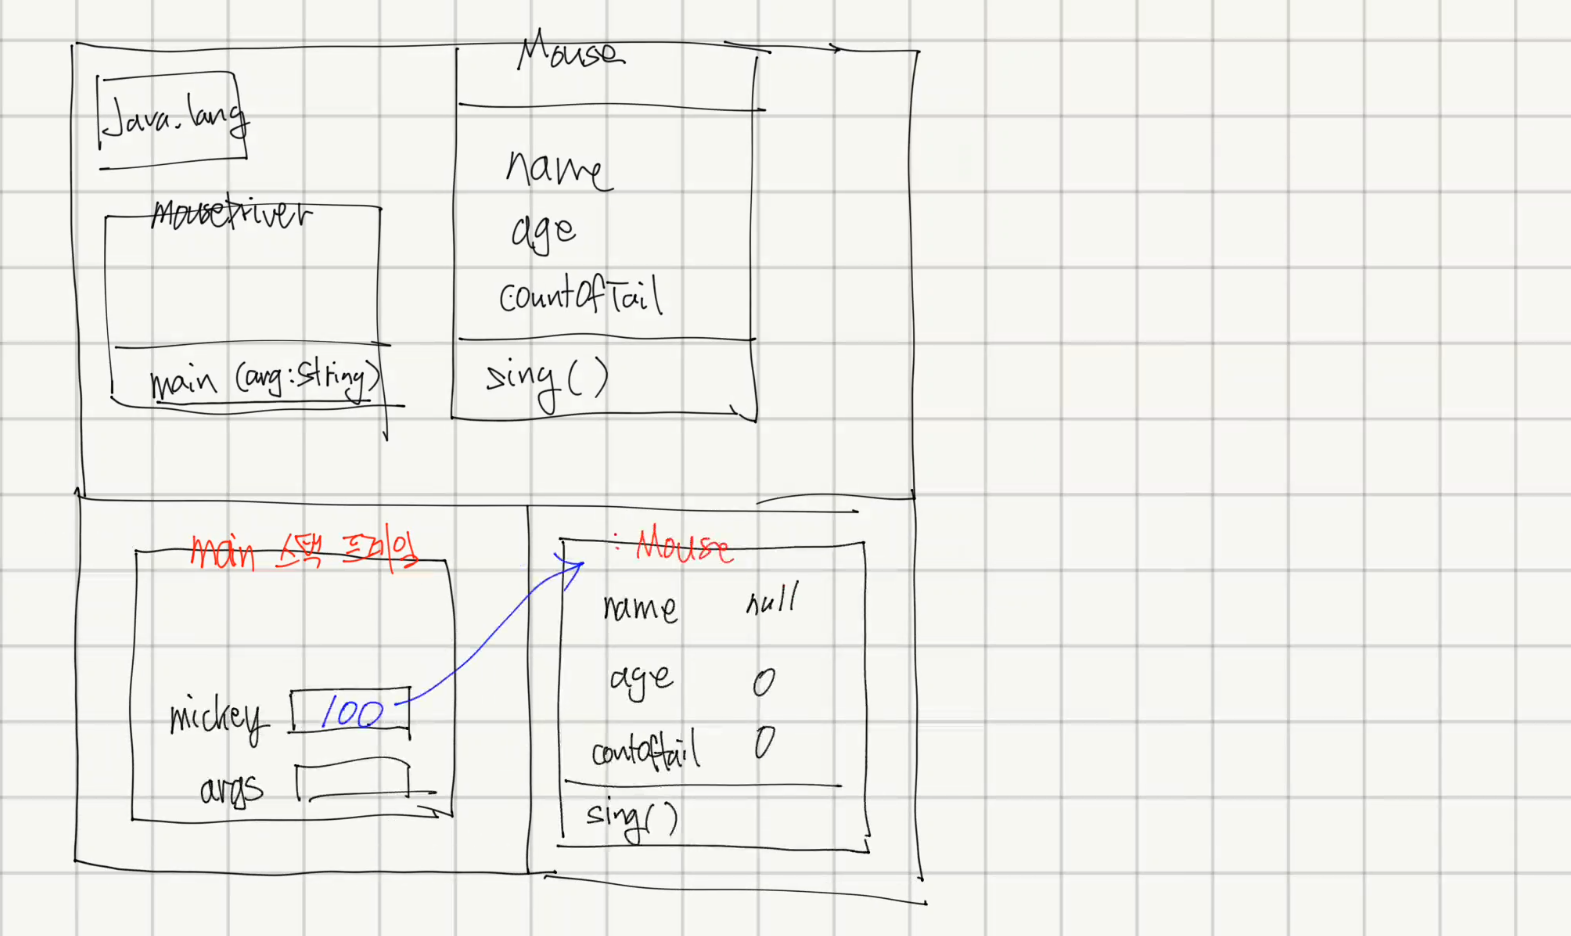 Java.lang
MouseDriver
main (arg:String)
Mouse
name
age
countOfTail
sing()
main 스택 프레임
mickey 100
args
: Mouse
name null
age 0
contoftail 0
sing()